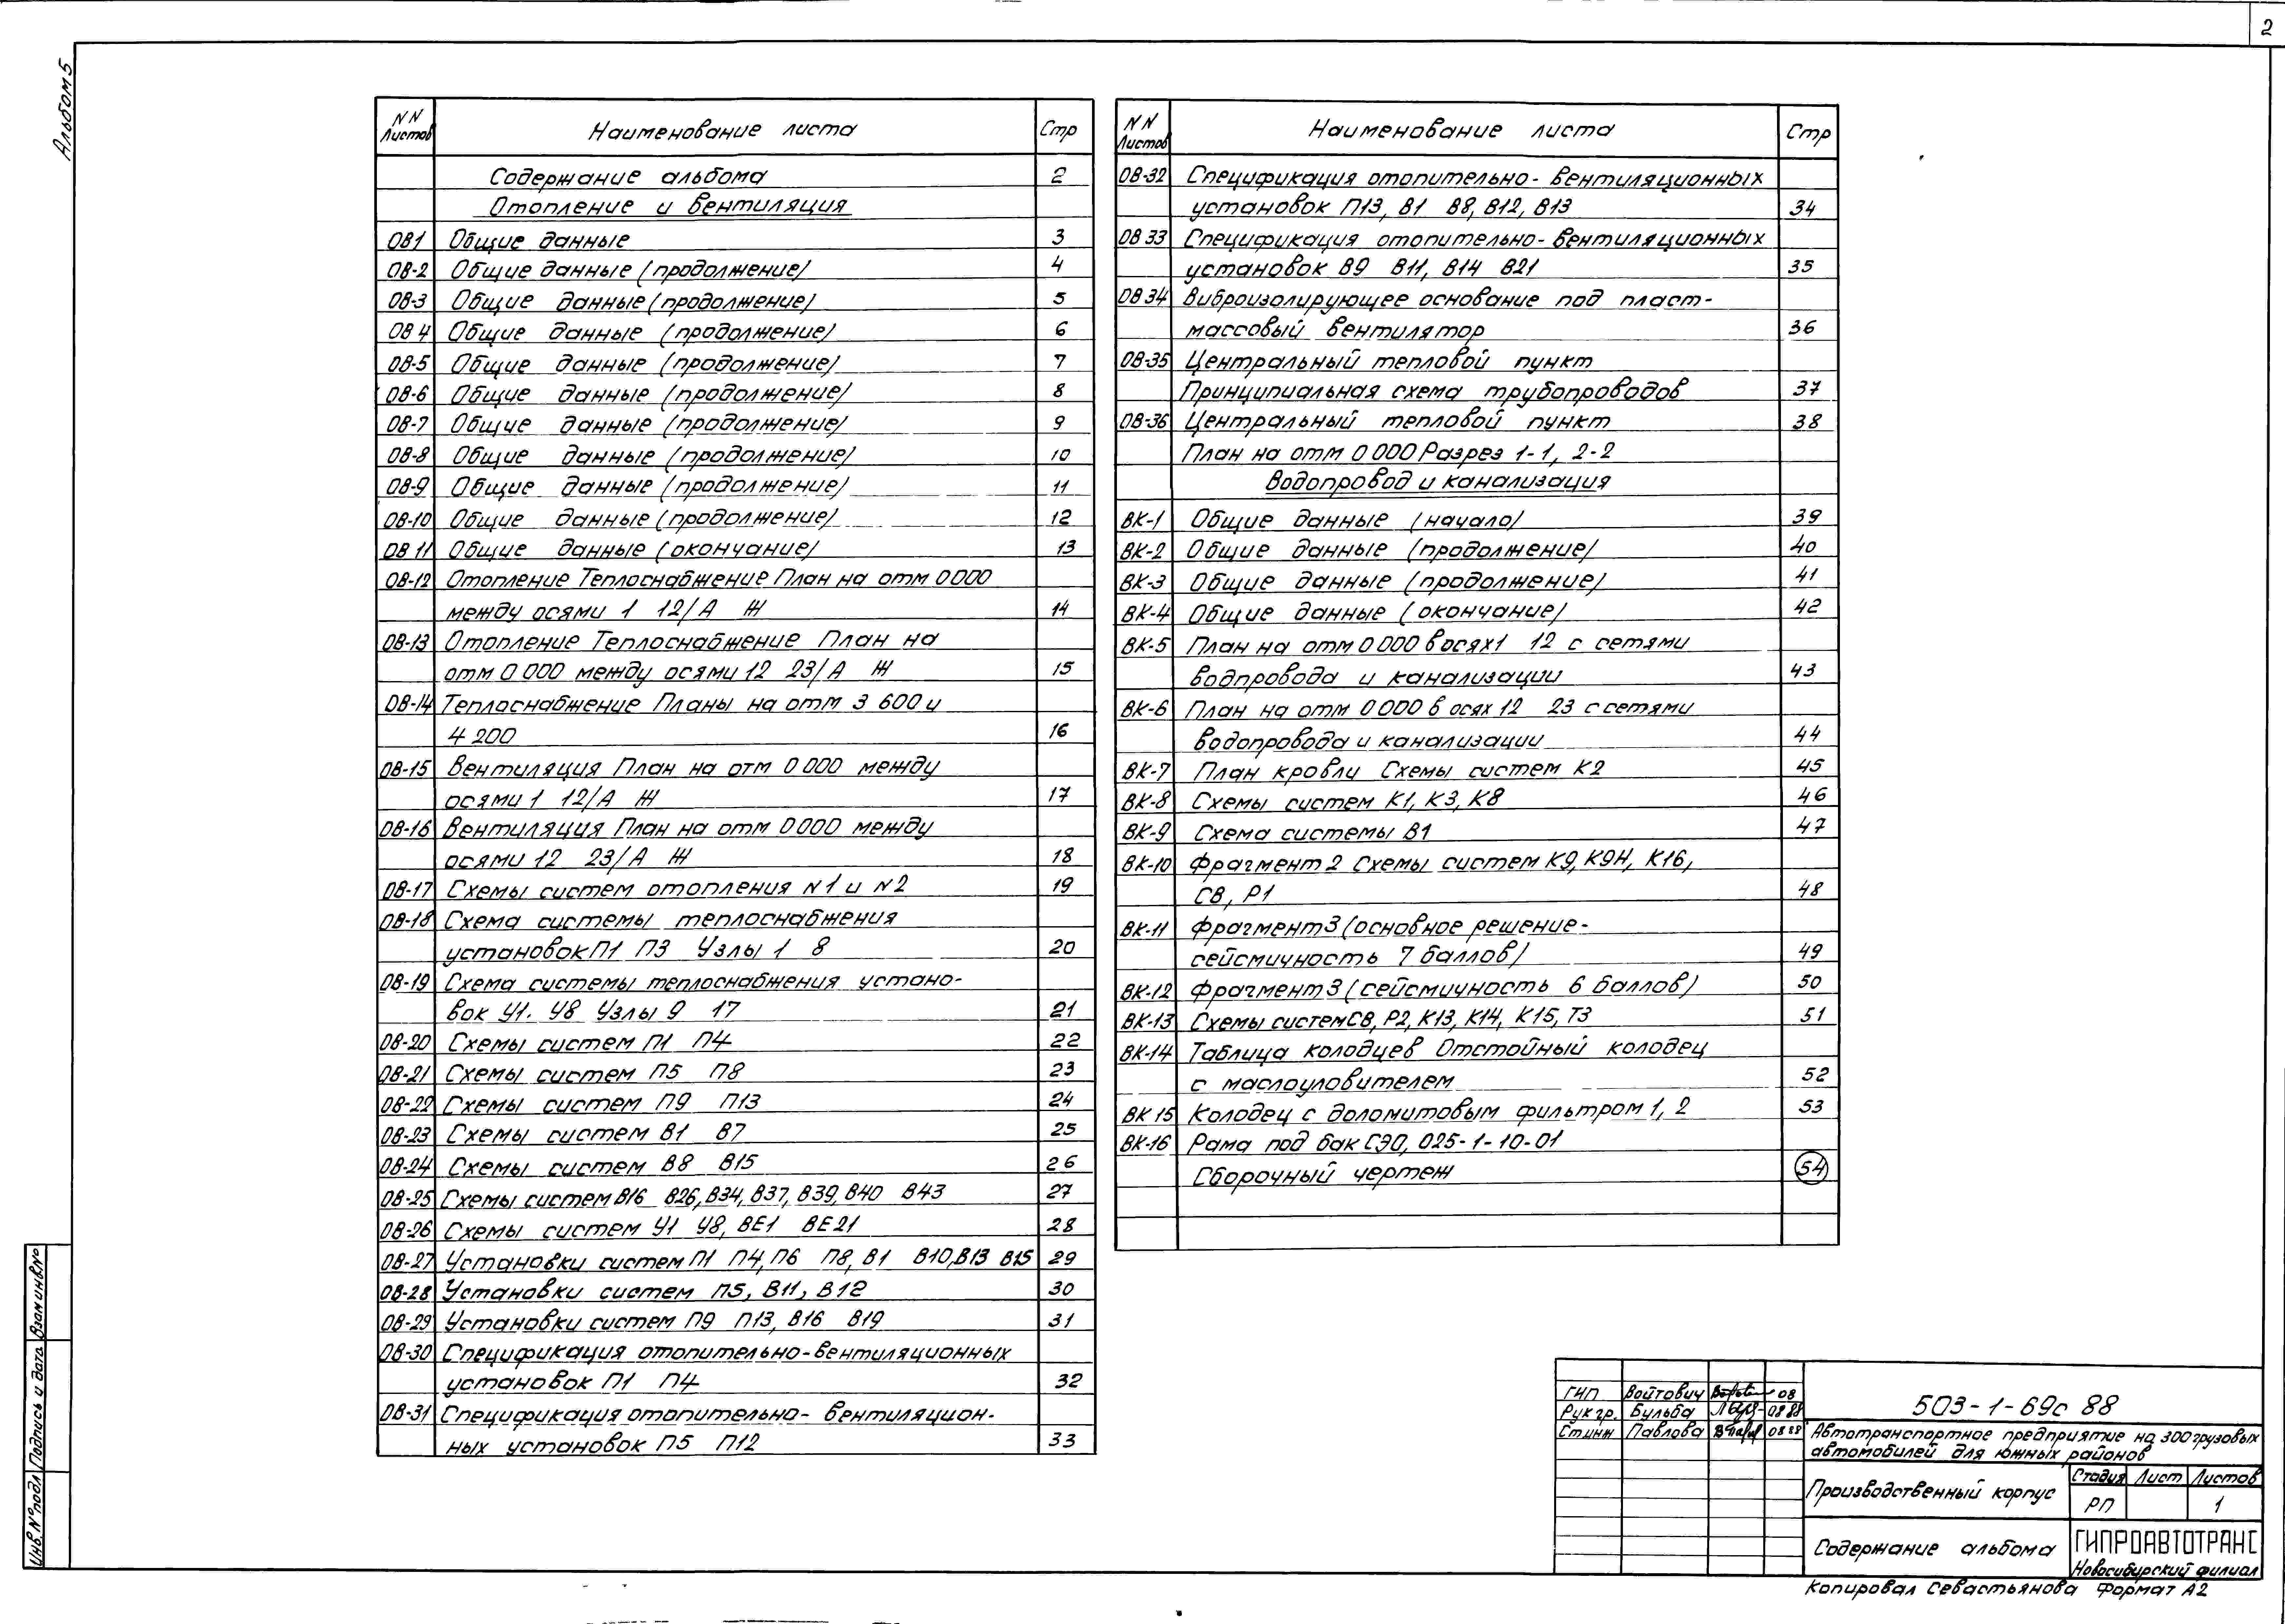 2
Альбом 5
NN Листов Наименование листа Стр
Содержание альбома 2
Отопление и вентиляция
ОВ1 Общие данные 3
ОВ-2 Общие данные (продолжение) 4
ОВ-3 Общие данные (продолжение) 5
ОВ 4 Общие данные (продолжение) 6
ОВ-5 Общие данные (продолжение) 7
ОВ-6 Общие данные (продолжение) 8
ОВ-7 Общие данные (продолжение) 9
ОВ-8 Общие данные (продолжение) 10
ОВ-9 Общие данные (продолжение) 11
ОВ-10 Общие данные (продолжение) 12
ОВ 11 Общие данные (окончание) 13
ОВ-12 Отопление Теплоснабжение План на отм 0 000
между осями 1 12/А Ж 14
ОВ-13 Отопление Теплоснабжение План на
отм 0 000 между осями 12 23/А Ж 15
ОВ-14 Теплоснабжение Планы на отм 3 600 и
4 200 16
ОВ-15 Вентиляция План на отм 0 000 между
осями 1 12/А Ж 17
ОВ-16 Вентиляция План на отм 0 000 между
осями 12 23/А Ж 18
ОВ-17 Схемы систем отопления N1 и N2 19
ОВ-18 Схема системы теплоснабжения
установок П1 П3 Узлы 1 8 20
ОВ-19 Схема системы теплоснабжения устано-
вок У1. У8 Узлы 9 17 21
ОВ-20 Схемы систем П1 П4 22
ОВ-21 Схемы систем П5 П8 23
ОВ-22 Схемы систем П9 П13 24
ОВ-23 Схемы систем В1 В7 25
ОВ-24 Схемы систем В8 В15 26
ОВ-25 Схемы систем В16 В26, В34, В37, В39, В40 В43 27
ОВ-26 Схемы систем У1 У8, ВЕ1 ВЕ21 28
ОВ-27 Установки систем П1 П4, П6 П8, В1 В10, В13 В15 29
ОВ-28 Установки систем П5, В11, В12 30
ОВ-29 Установки систем П9 П13, В16 В19 31
ОВ-30 Спецификация отопительно-вентиляционных
установок П1 П4 32
ОВ-31 Спецификация отопительно-вентиляцион-
ных установок П5 П12 33
NN Листов Наименование листа Стр
ОВ-32 Спецификация отопительно-вентиляционных
установок П13, В1 В8, В12, В13 34
ОВ 33 Спецификация отопительно-вентиляционных
установок В9 В11, В14 В21 35
ОВ 34 Виброизолирующее основание под пласт-
массовый вентилятор 36
ОВ-35 Центральный тепловой пункт
Принципиальная схема трубопроводов 37
ОВ-36 Центральный тепловой пункт 38
План на отм 0 000 Разрез 1-1, 2-2
Водопровод и канализация
ВК-1 Общие данные (начало) 39
ВК-2 Общие данные (продолжение) 40
ВК-3 Общие данные (продолжение) 41
ВК-4 Общие данные (окончание) 42
ВК-5 План на отм 0 000 в осях 1 12 с сетями
водпровода и канализации 43
ВК-6 План на отм 0 000 в осях 12 23 с сетями
водопровода и канализации 44
ВК-7 План кровли Схемы систем К2 45
ВК-8 Схемы систем К1, К3, К8 46
ВК-9 Схема системы В1 47
ВК-10 Фрагмент 2 Схемы систем К9, К9Н, К16,
СВ, Р1 48
ВК-11 Фрагмент 3 (основное решение-
сейсмичность 7 баллов) 49
ВК-12 Фрагмент 3 (сейсмичность 6 баллов) 50
ВК-13 Схемы систем СВ, Р2, К13, К14, К15, Т3 51
ВК-14 Таблица колодцев Отстойный колодец
с маслоуловителем 52
ВК 15 Колодец с доломитовым фильтром 1, 2 53
ВК-16 Рама под бак СЭО, 025-1-10-01
Сборочный чертеж 54
ГИП Войтович 08
Рук гр. Бульба 08 88
Ст инж Павлова 08 88
503-1-69с 88
Автотранспортное предприятие на 300 грузовых
автомобилей для южных районов
Производственный корпус
Стадия Лист Листов
РП 1
Содержание альбома
ГИПРОАВТОТРАНС
Новосибирский филиал
Копировал Севастьянова Формат А2
Инв. № подл Подпись и дата Взам инв №